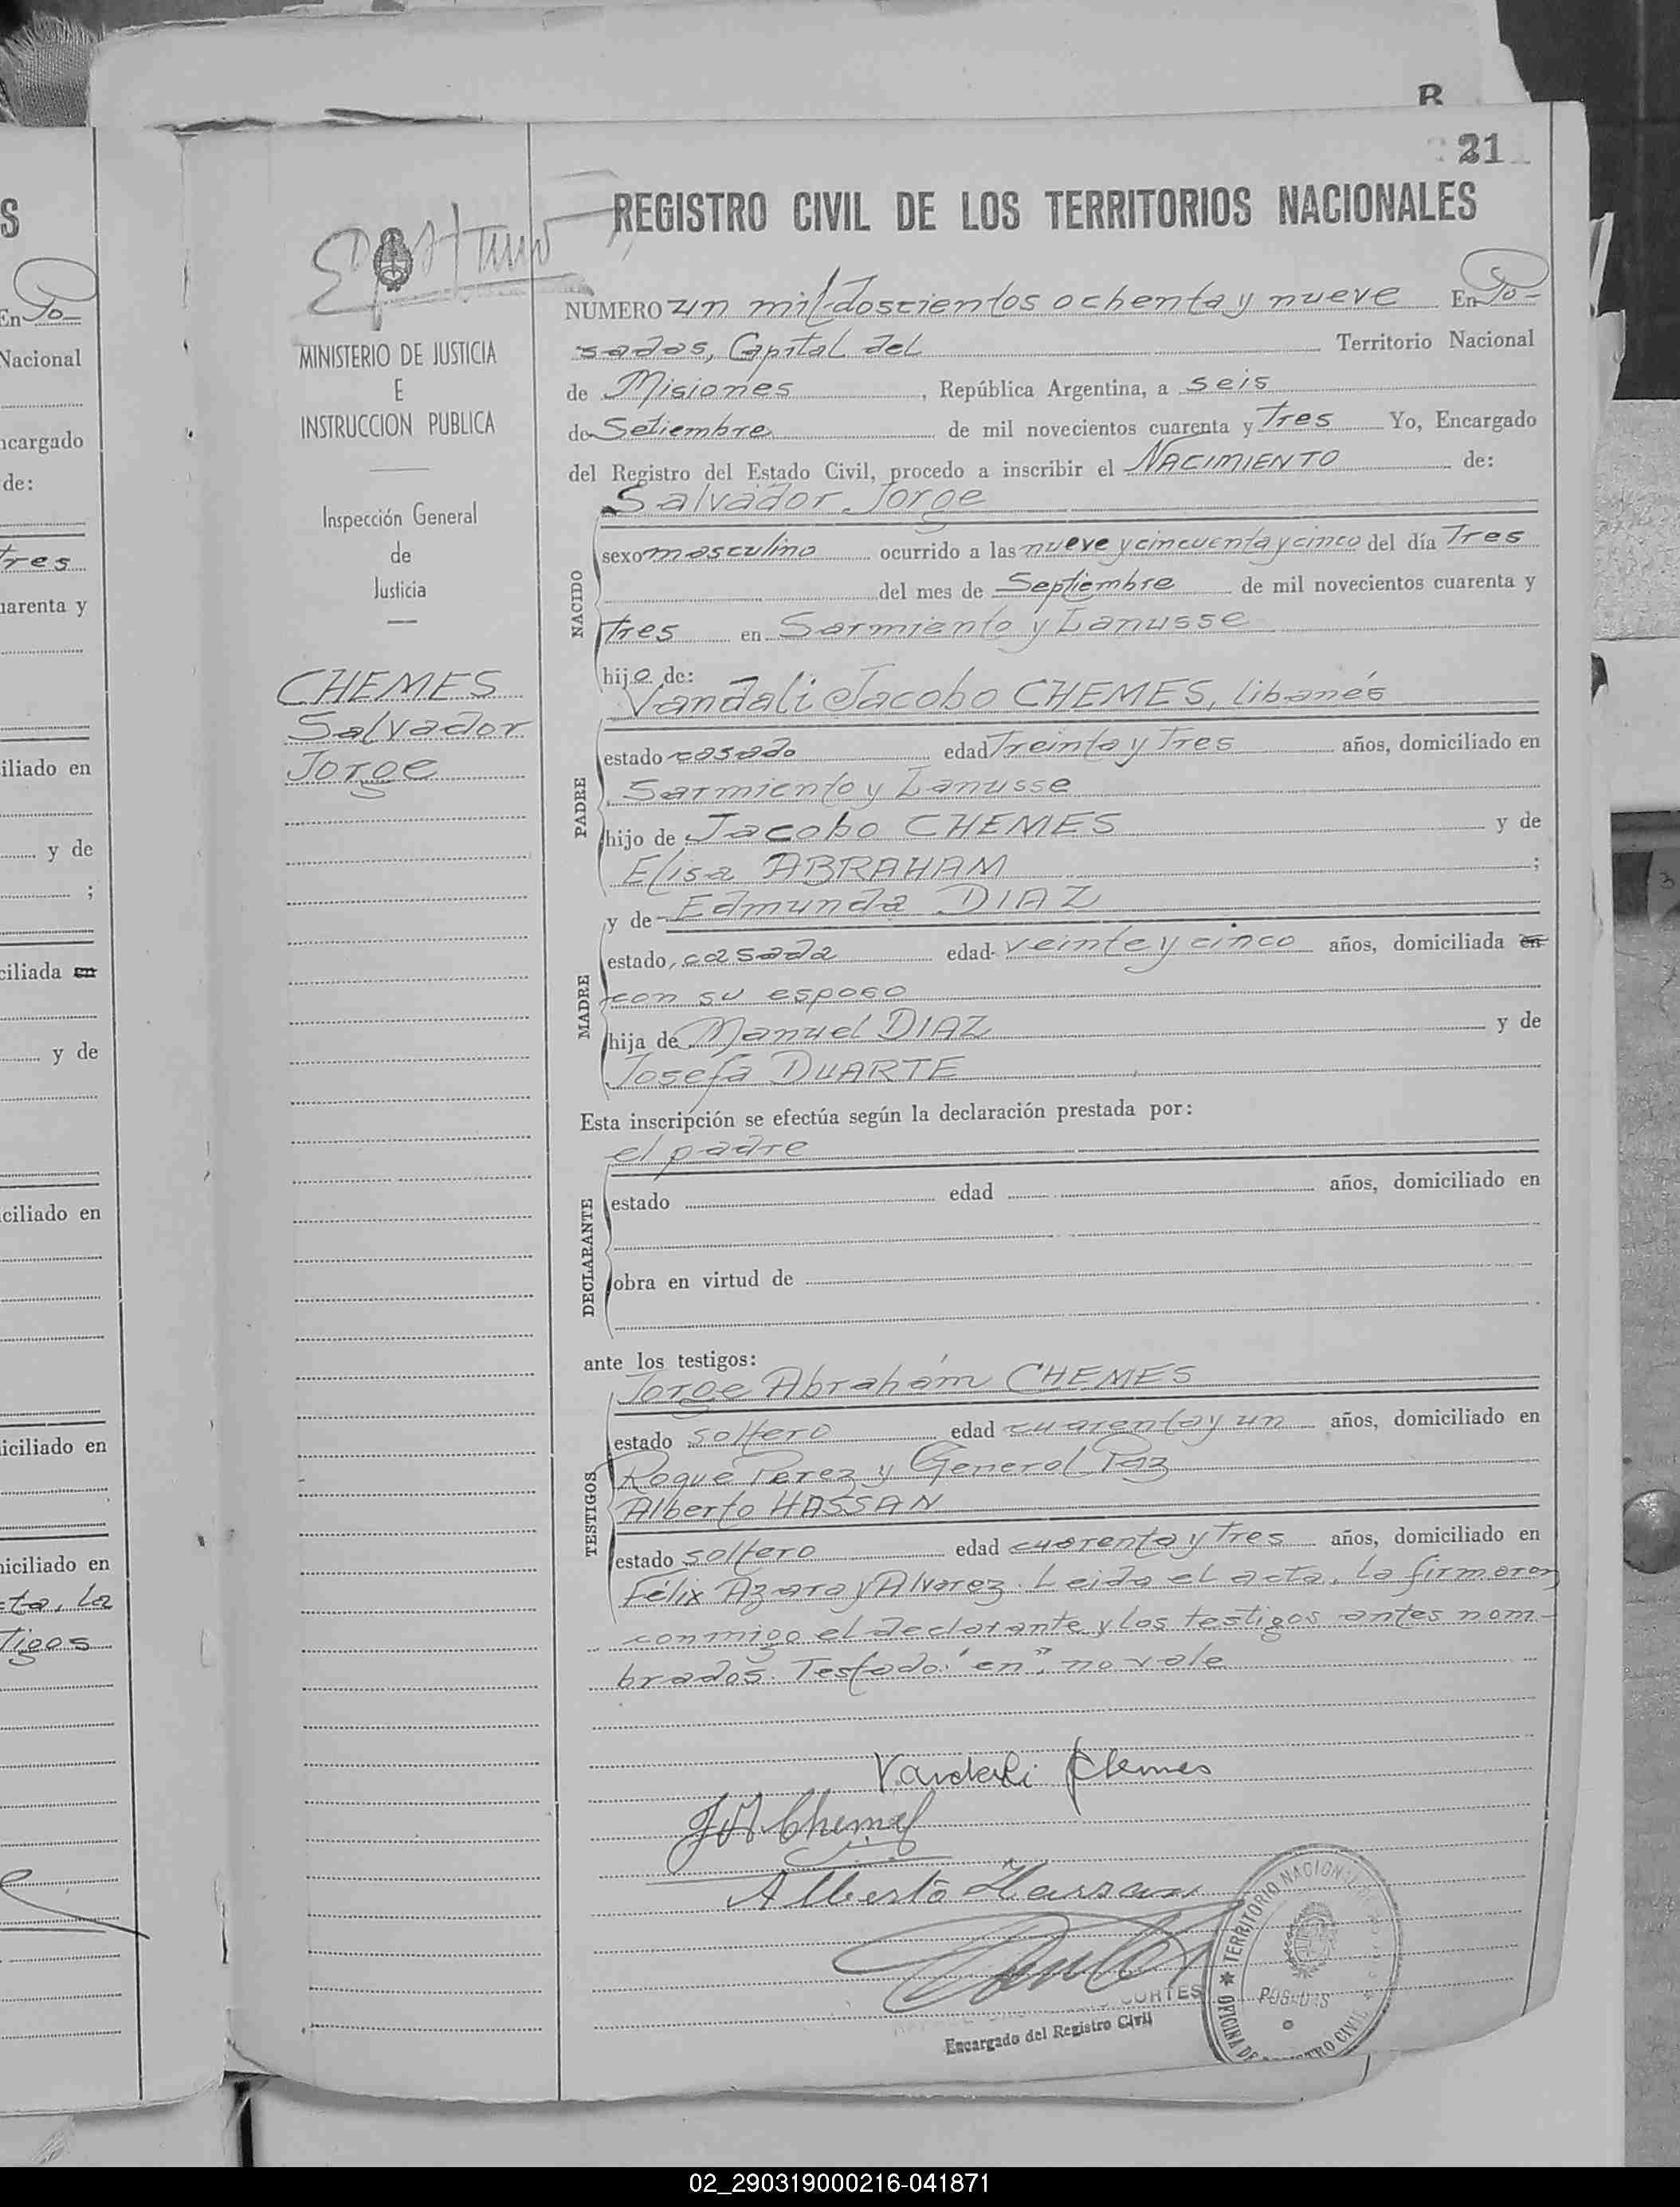 B
21
REGISTRO CIVIL DE LOS TERRITORIOS NACIONALES
NUMERO un mil doscientos ochenta y nueve En Po-
sadas, Capital del Territorio Nacional
de Misiones, República Argentina, a seis
de Setiembre de mil novecientos cuarenta y Tres Yo, Encargado
del Registro del Estado Civil, procedo a inscribir el NACIMIENTO de:
Salvador Jorge
NACIDO
sexo masculino ocurrido a las nueve y cincuenta y cinco del día Tres
del mes de Septiembre de mil novecientos cuarenta y
tres en Sarmiento y Lanusse
hijo de:
Vandali Jacobo CHEMES, libanés
PADRE
estado casado edad Treinta y Tres años, domiciliado en
Sarmiento y Lanusse
hijo de Jacobo CHEMES y de
Elisa ABRAHAM ;
y de Edmunda DIAZ
MADRE
estado, casada edad veinte y cinco años, domiciliada en
con su esposo
hija de Manuel DIAZ y de
Josefa DUARTE
Esta inscripción se efectúa según la declaración prestada por:
el padre
DECLARANTE
estado edad años, domiciliado en
obra en virtud de
ante los testigos:
Jorge Abrahám CHEMES
TESTIGOS
estado soltero edad cuarenta y un años, domiciliado en
Roque Perez y General Paz
Alberto HASSAN
estado soltero edad cuarenta y tres años, domiciliado en
Félix Azara y Alvarez. Leida el acta, la firmaron
conmigo el declarante y los testigos antes nom-
brados. Testado: "en", no vale
Vandali Chemes
J A Chemes
Alberto Hassan
CORTES
Encargado del Registro Civil
OFICINA DE REGISTRO CIVIL ✱ TERRITORIO NACIONAL
POSADAS
MINISTERIO DE JUSTICIA
E
INSTRUCCION PUBLICA
Inspección General
de
Justicia
CHEMES
Salvador
Jorge
S
En Po-
Nacional
ncargado
de:
tres
uarenta y
iliado en
y de
;
ciliada en
y de
ciliado en
iciliado en
niciliado en
cta, La
tigos
02_290319000216-041871